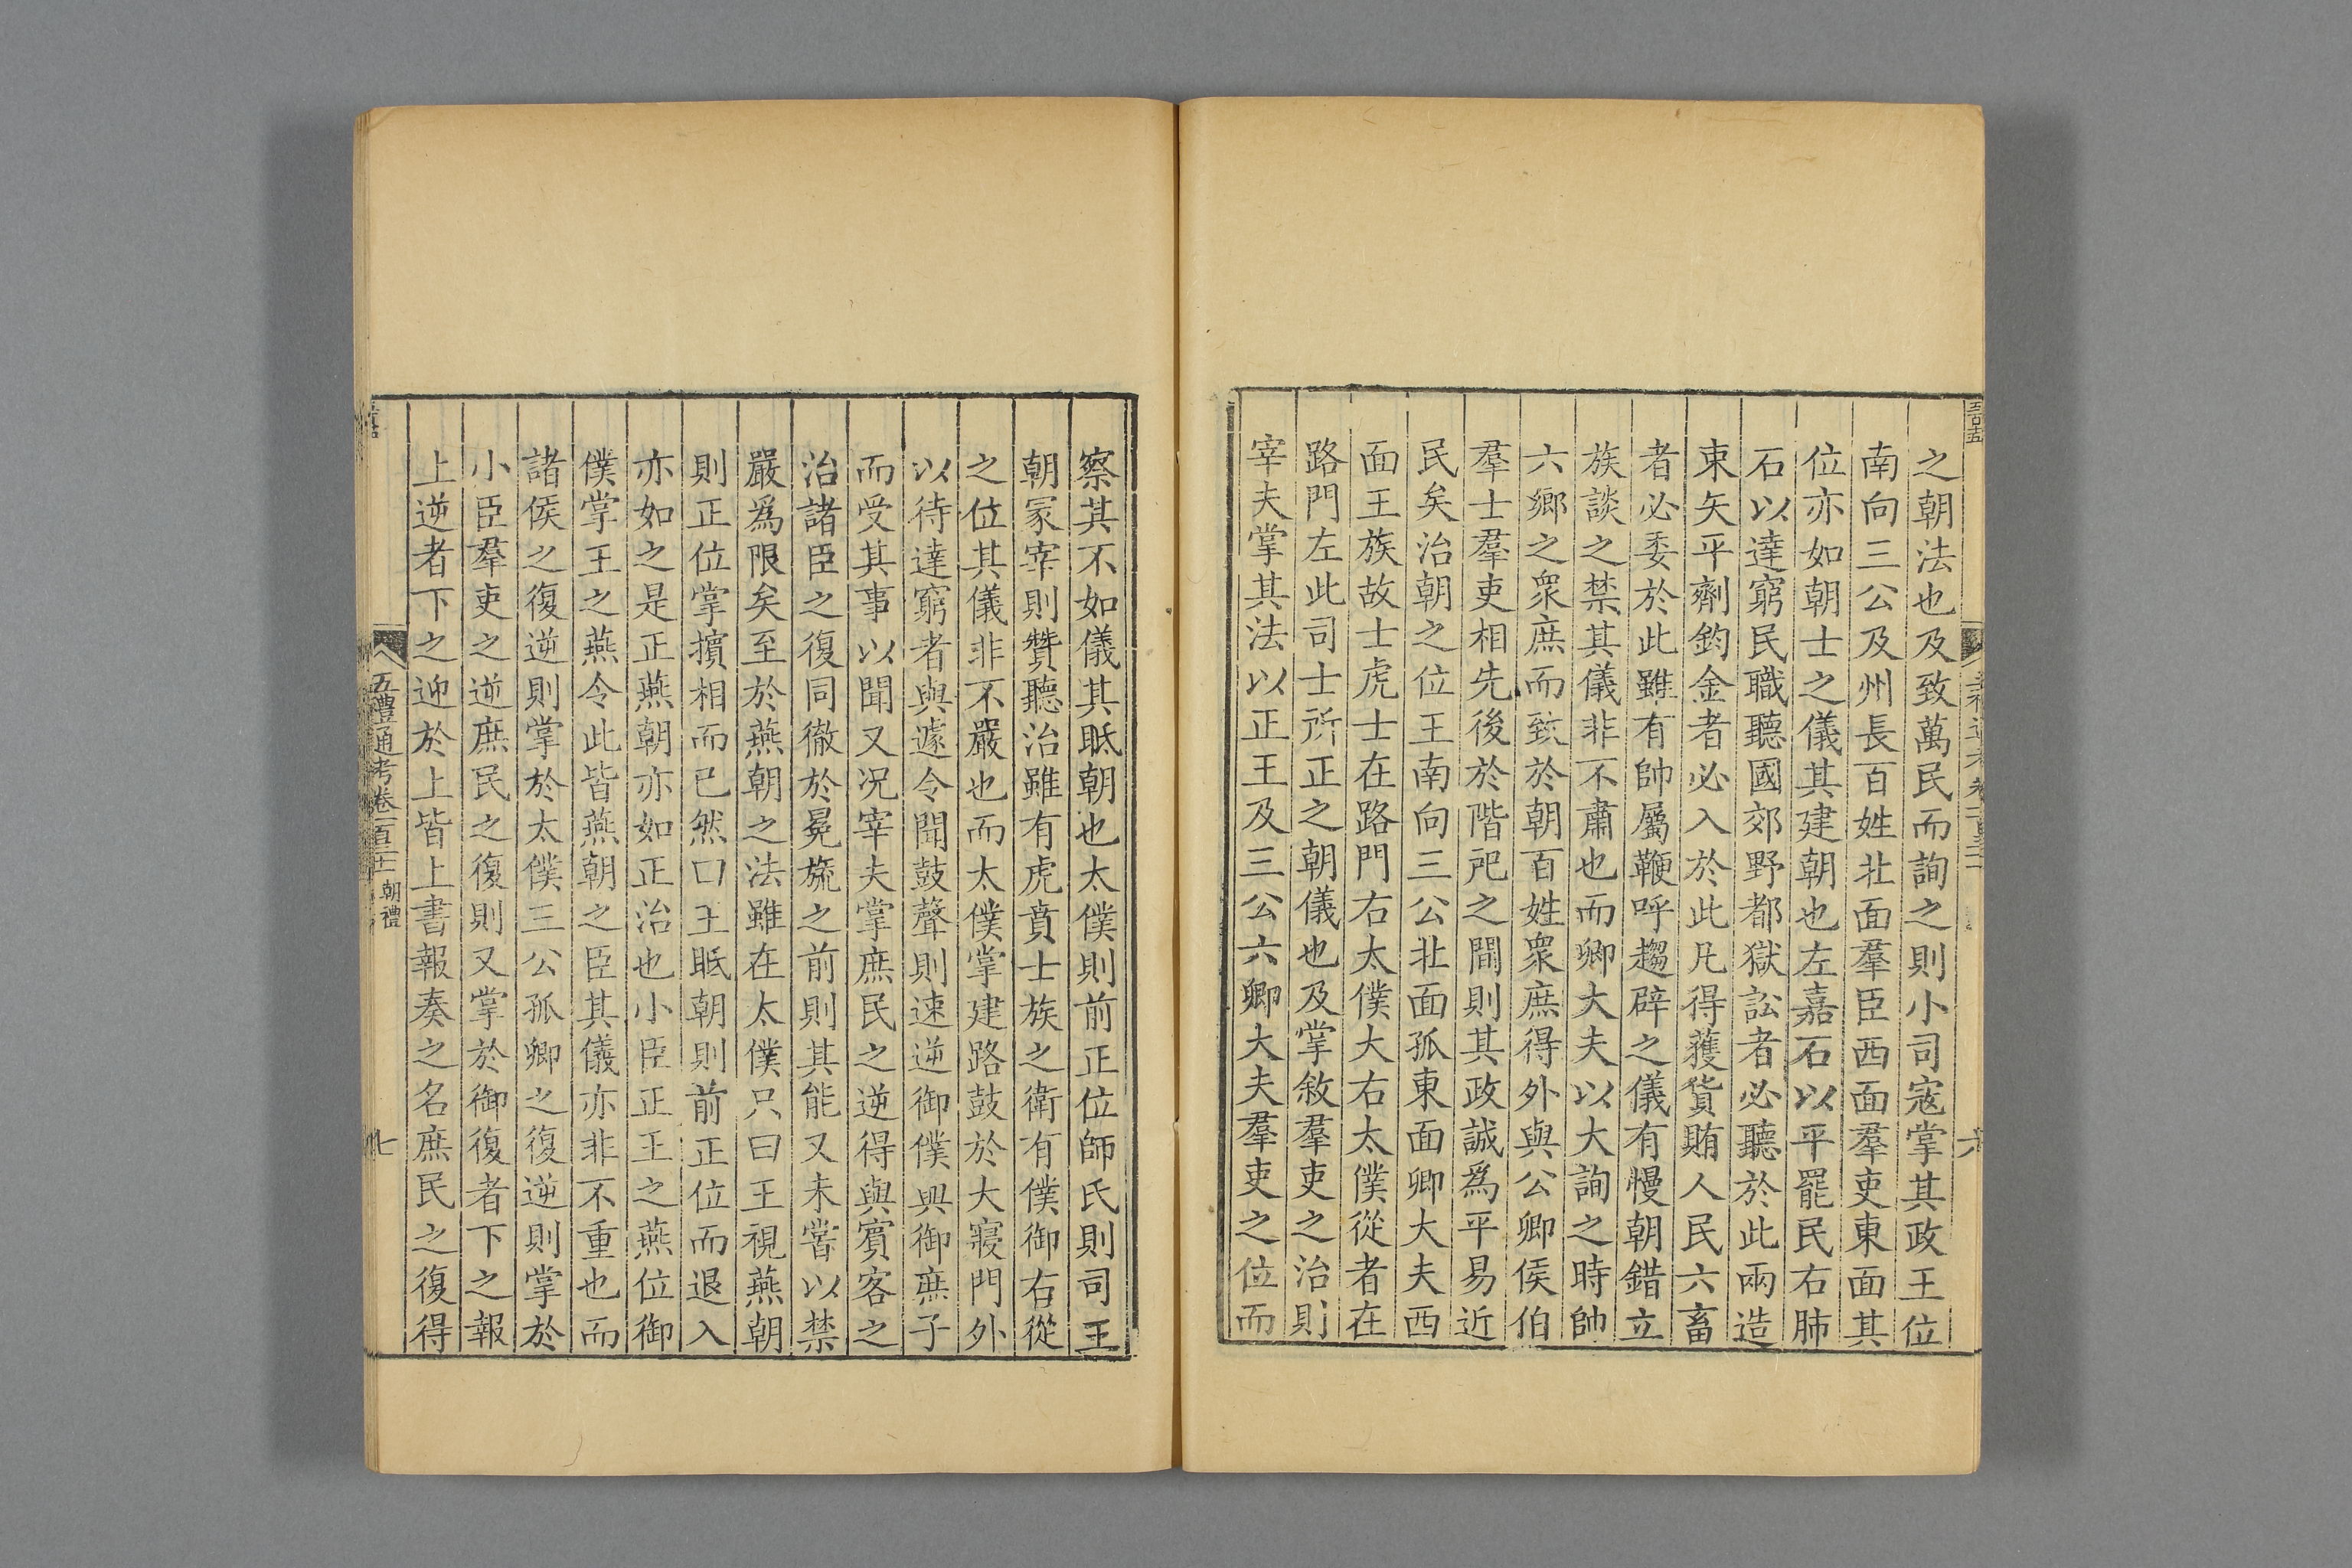 之朝法也及致萬民而詢之則小司寇掌其政王位
南向三公及州長百姓北面羣臣西面羣吏東面其
位亦如朝士之儀其建朝也左嘉石以平罷民右肺
石以達窮民職聽國郊野都獄訟者必聽於此兩造
束矢平劑鈞金者必入於此凡得獲貨賄人民六畜
者必委於此雖有帥屬鞭呼趨辟之儀有慢朝錯立
族談之禁其儀非不肅也而卿大夫以大詢之時帥
六鄉之眾庶而致於朝百姓眾庶得外與公卿侯伯
羣士羣吏相先後於階戺之間則其政誠爲平易近
民矣治朝之位王南向三公北面孤東面卿大夫西
面王族故士虎士在路門右太僕大右太僕從者在
路門左此司士所正之朝儀也及掌敘羣吏之治則
宰夫掌其法以正王及三公六卿大夫羣吏之位而
察其不如儀其眡朝也太僕則前正位師氏則司王
朝冢宰則贊聽治雖有虎賁士族之衛有僕御右從
之位其儀非不嚴也而太僕掌建路鼓於大寢門外
以待達窮者與遽令聞鼓聲則速逆御僕與御庶子
而受其事以聞又况宰夫掌庶民之逆得與賓客之
治諸臣之復同徹於冕旒之前則其能又未嘗以禁
嚴爲限矣至於燕朝之法雖在太僕只曰王視燕朝
則正位掌擯相而已然王眡朝則前正位而退入
亦如之是正燕朝亦如正治也小臣正王之燕位御
僕掌王之燕令此皆燕朝之臣其儀亦非不重也而
諸侯之復逆則掌於太僕三公孤卿之復逆則掌於
小臣羣吏之逆庶民之復則又掌於御復者下之報
上逆者下之迎於上皆上書報奏之名庶民之復得
五禮通考卷一百三十二 朝禮
七